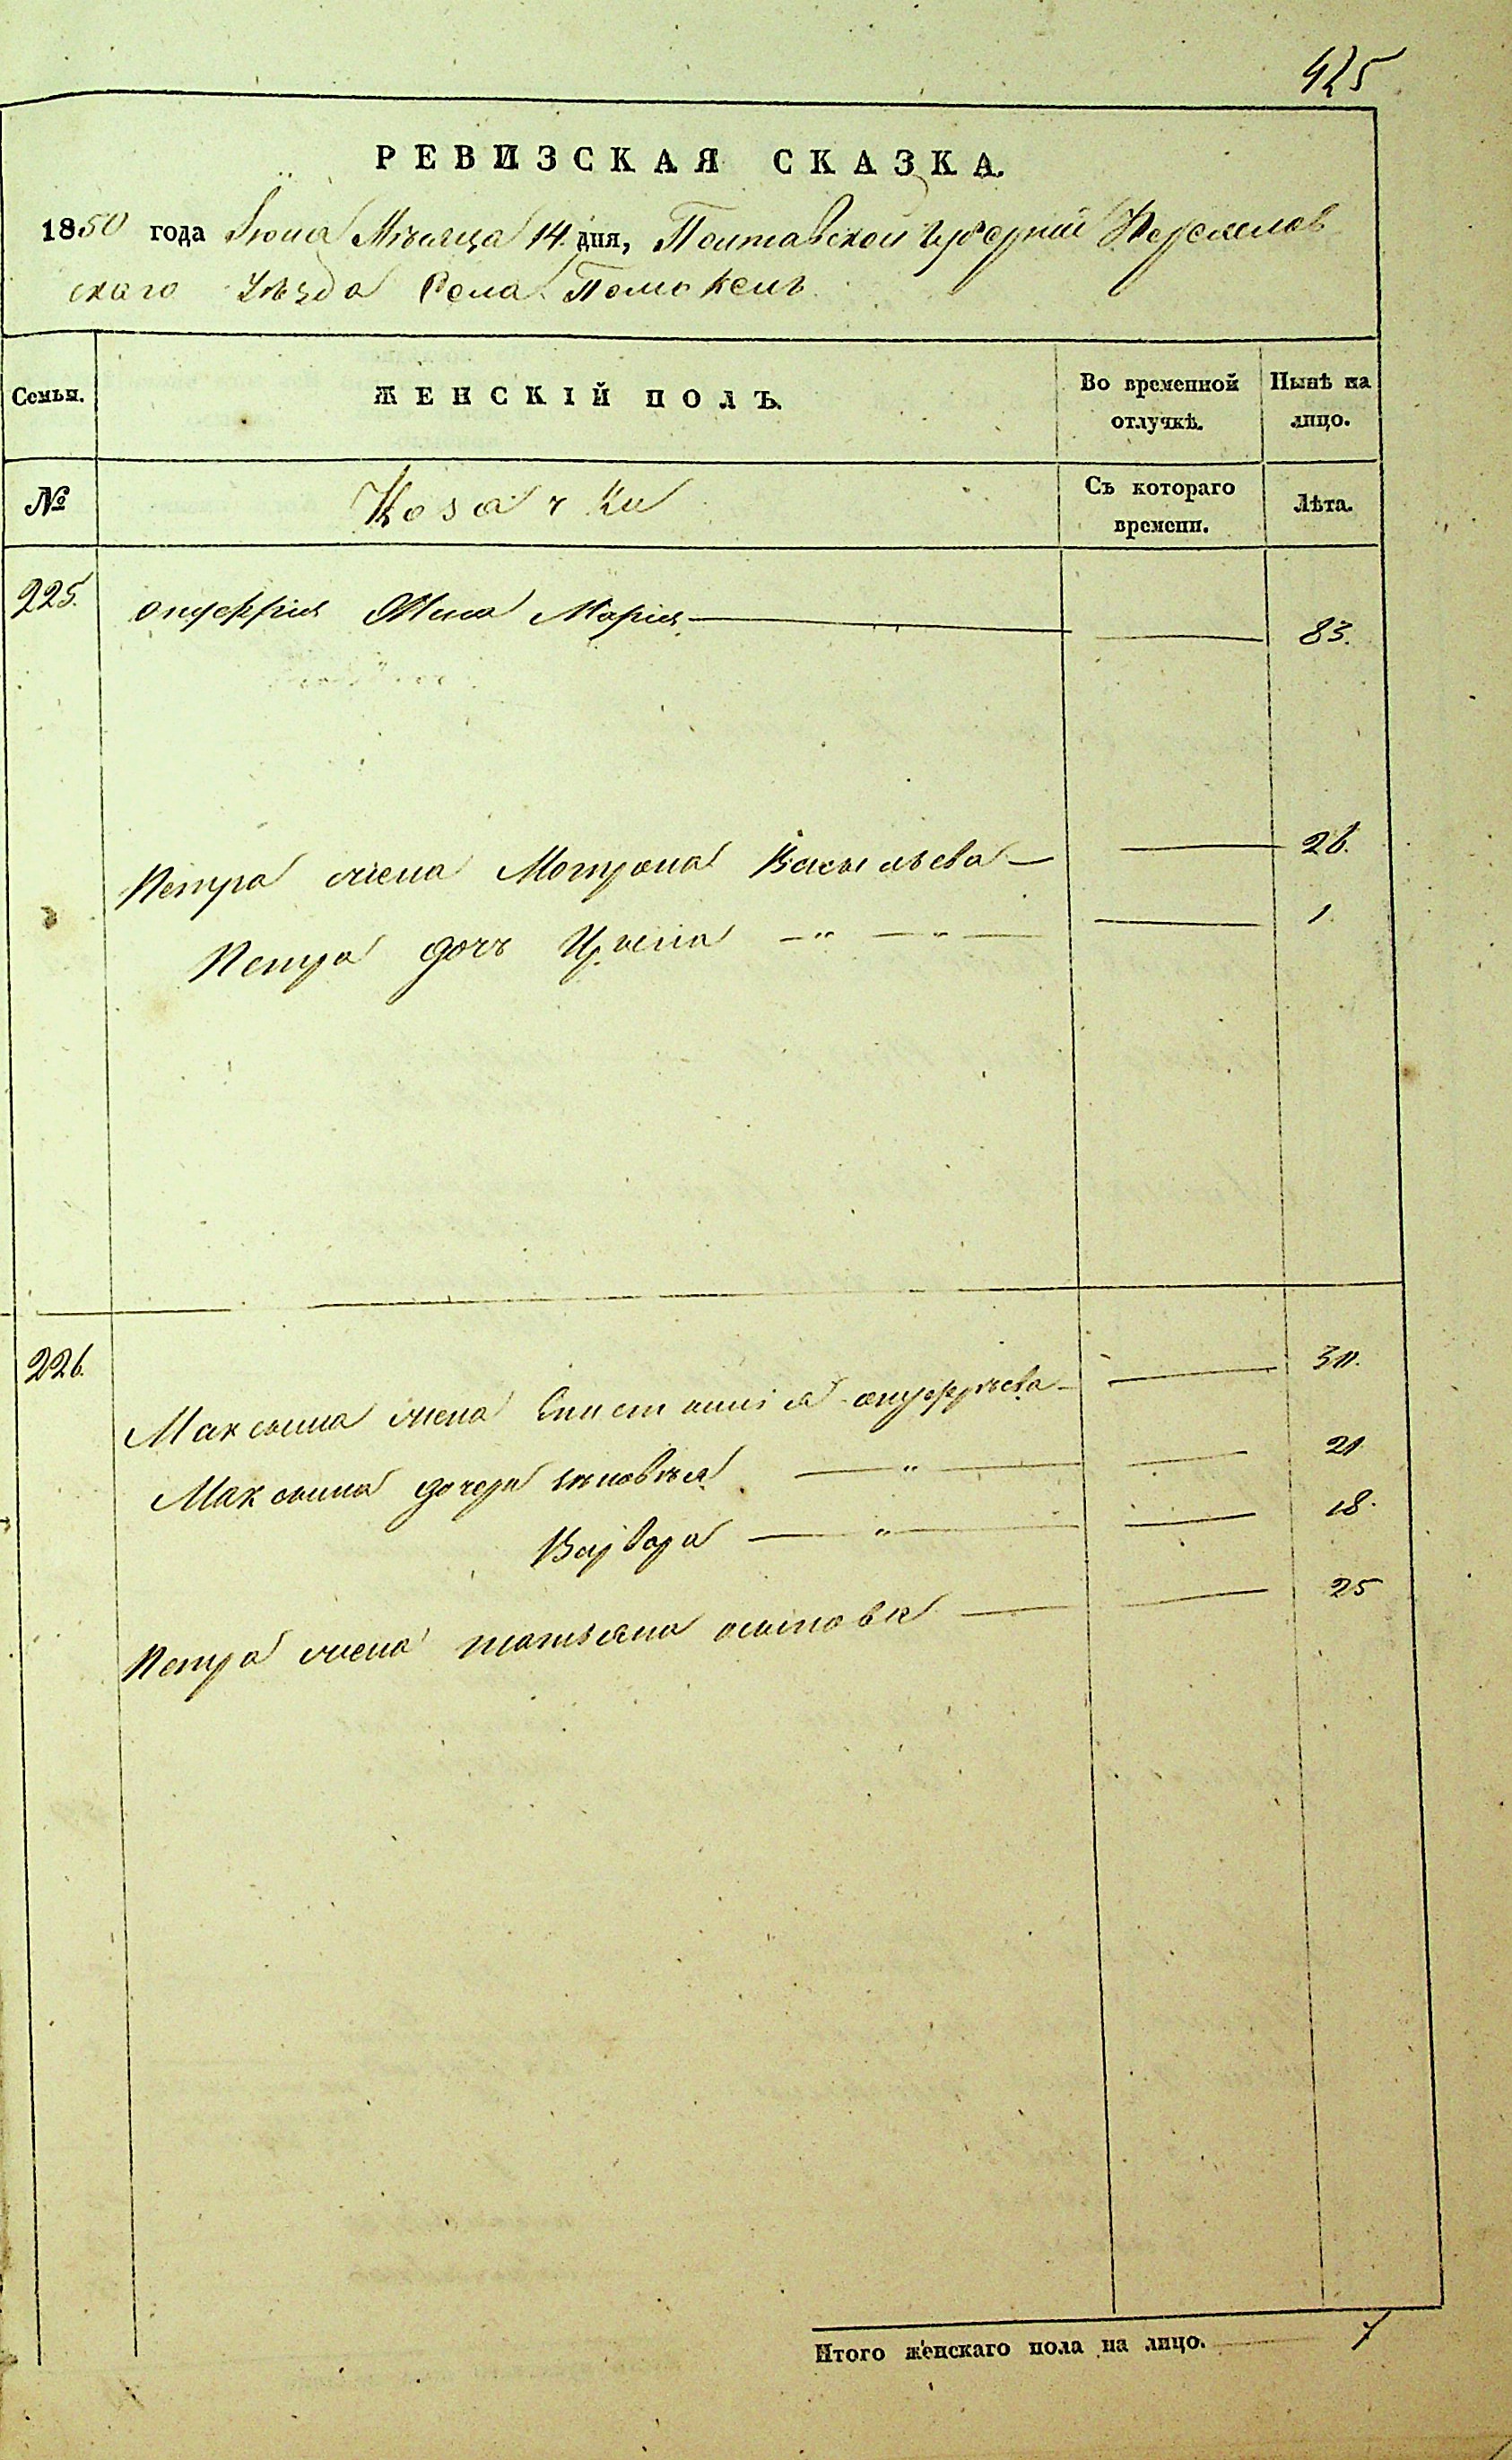 425
РЕВИЗСКАЯ СКАЗКА.
1850 года Іюна Мѣсяца 14 дня, Полтавской Губерніи Переяслов
скаго Уѣзда Села Помокель
Семьи.
ЖЕНСКІЙ ПОЛЪ.
Во временной отлучкѣ.
Нынѣ на лицо.
№
Козачки
Съ котораго времени.
Лѣта.
225. онуфрія Жена Марія 83.
Петра жена Мотрона Васильева 26.
Петра дочь Ирина 1.
226.
Максима жена Епистимія онуфріева
Максима дочери Зѣновѣя 21
Варвара 18.
Петра жена татьяна осипова 25
Итого женскаго пола на лицо. 7